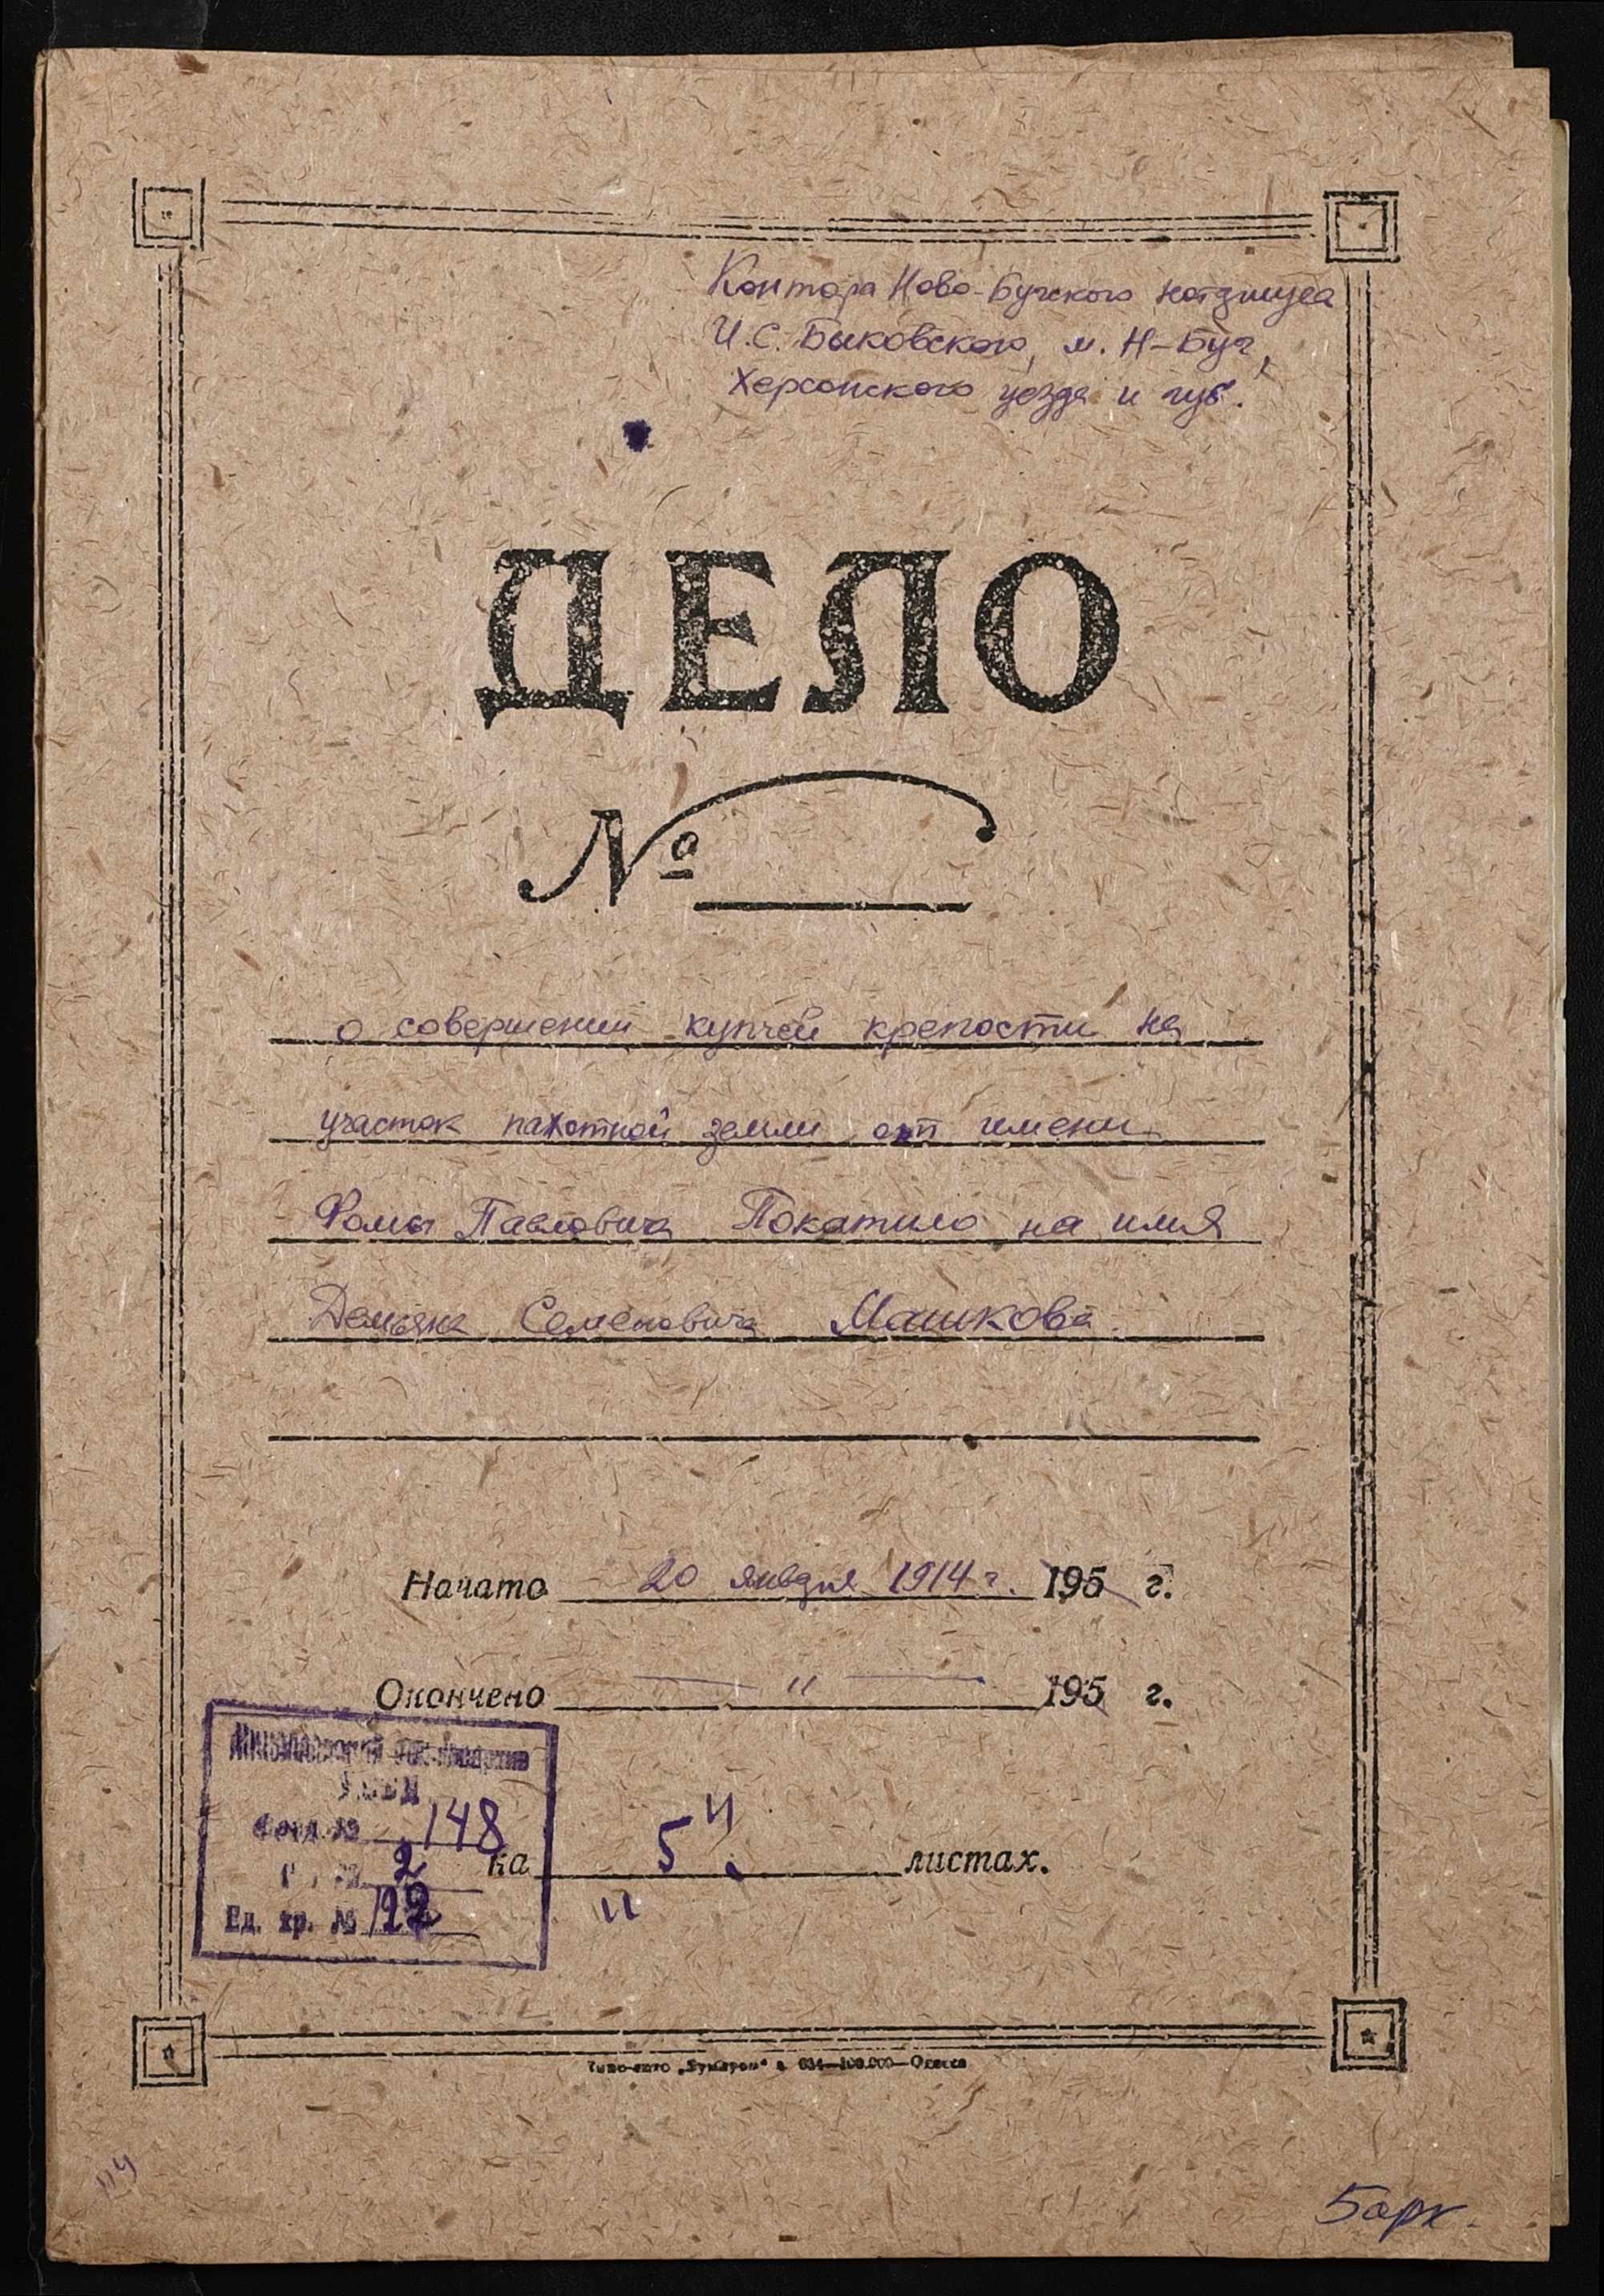 Контора Ново-Бугского нотариуса
И.С. Быковского, м. Н-Буг,
Херсонского уезда и губ.
ДЕЛО
№
о совершении купчей крепости на
участок пахотной земли от имени
Фомы Павловича Покатило на имя
Демьяна Семеновича Машкова.
Начато 20 января 1914 г. 195 г.
Окончено — " — 195 г.
Николаевский Обл. Госархив
УМВД
Фонд № 148
2
Ед. хр. № 192
на "5" листах.
Одесса
5 арк.